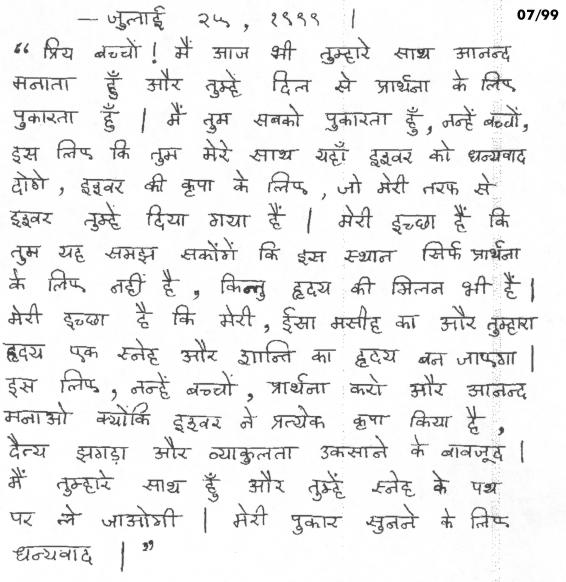 — जुलाई २५, १९९९ | 07/99
“ प्रिय बच्चों ! मैं आज भी तुम्हारे साथ आनन्द
मनाता हूँ और तुम्हें दिल से प्रार्थना के लिए
पुकारता हूँ | मैं तुम सबको पुकारता हूँ, नन्हें बच्चों,
इस लिए कि तुम मेरे साथ यहाँ इश्वर को धन्यवाद
दोगे, इश्वर की कृपा के लिए, जो मेरी तरफ से
इश्वर तुम्हें दिया गया हैं | मेरी इच्छा हैं कि
तुम यह समझ सकोगें कि इस स्थान सिर्फ प्रार्थना
के लिए नहीं है, किन्तु हृदय की मिलन भी हैं |
मेरी इच्छा है कि मेरी, ईसा मसीह का और तुम्हारा
हृदय एक स्नेह और शान्ति का हृदय बन जाएगा |
इस लिए, नन्हें बच्चों, प्रार्थना करो और आनन्द
मनाओ क्योंकि इश्वर ने प्रत्येक कृपा किया है,
दैत्य झगड़ा और व्याकुलता उकसाने के बावजूद |
मैं तुम्हारे साथ हूँ और तुम्हें स्नेह के पथ
पर ले जाओगी | मेरी पुकार सुनने के लिए
धन्यवाद | ”